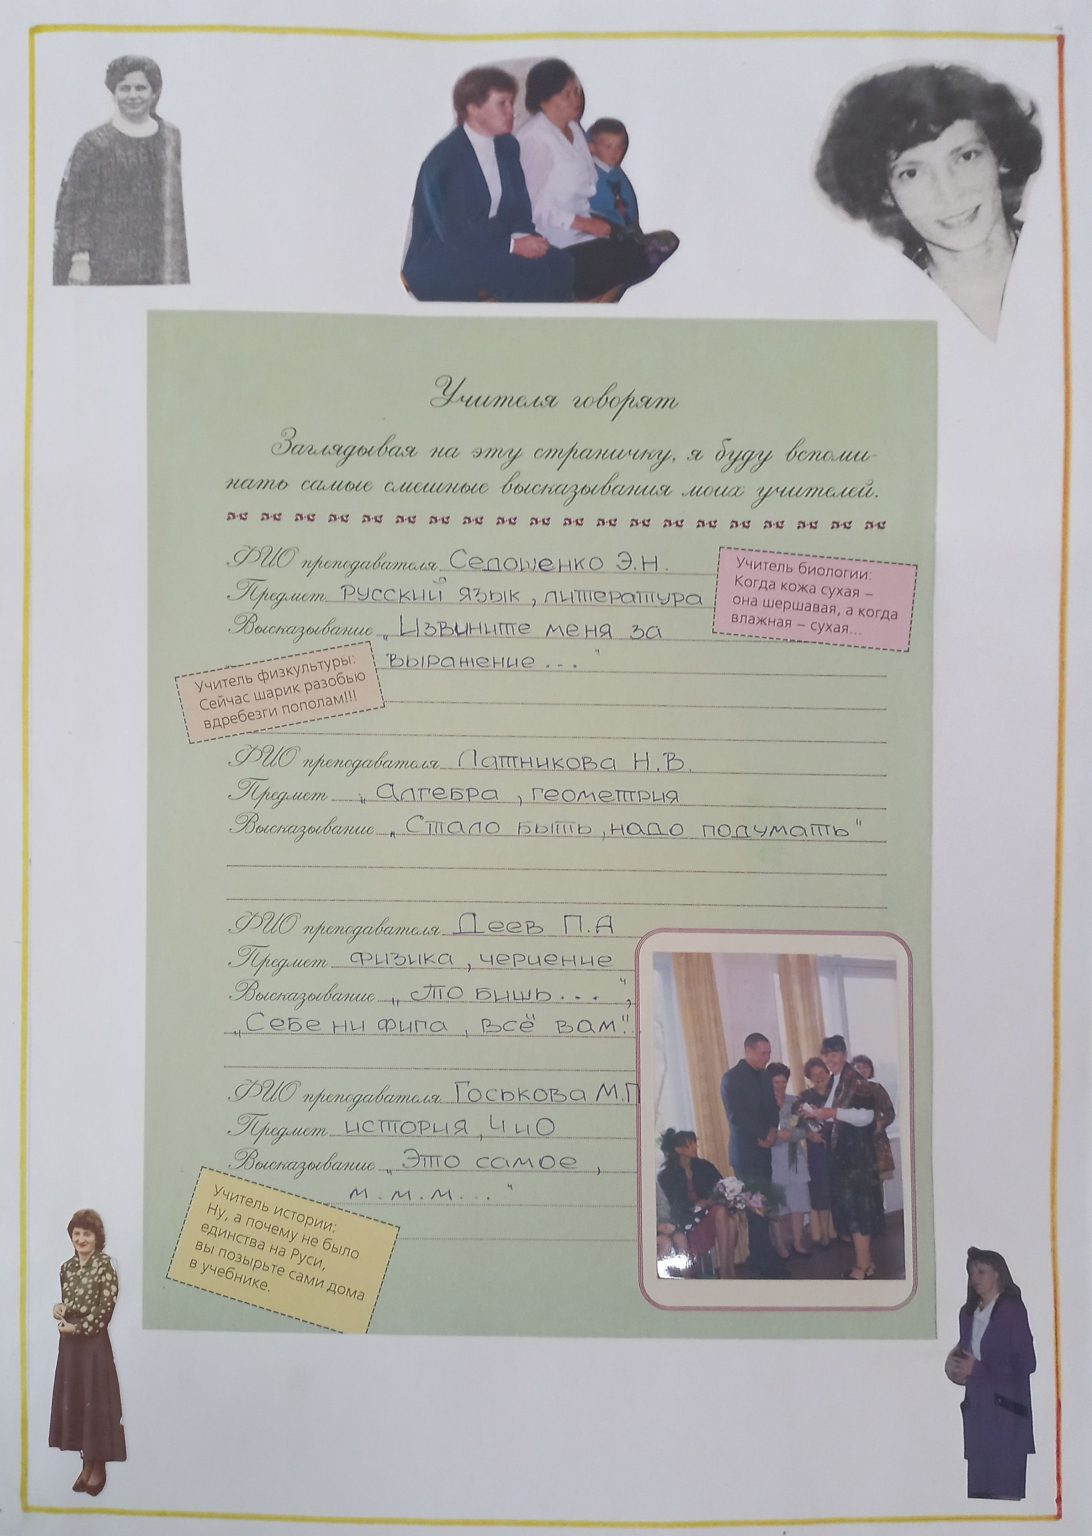 Учителя говорят
Заглядывая на эту страничку, я буду вспоми-
нать самые смешные высказывания моих учителей.
ФИО преподавателя Седошенко Э.Н.
Предмет русский язык, литература
Высказывание „Извините меня за
выражение..."
Учитель биологии:
Когда кожа сухая –
она шершавая, а когда
влажная – сухая...
Учитель физкультуры:
Сейчас шарик разобью
вдребезги пополам!!!
ФИО преподавателя Латникова Н.В.
Предмет „ алгебра, геометрия
Высказывание „Стало быть, надо подумать"
ФИО преподавателя Деев П.А
Предмет физика, черчение
Высказывание „это бишь...",
„Себе ни фига, всё вам".
ФИО преподавателя Госькова М.П
Предмет история, ЧиО
Высказывание „Это самое,
м.м.м..."
Учитель истории:
Ну, а почему не было
единства на Руси,
вы позырьте сами дома
в учебнике.